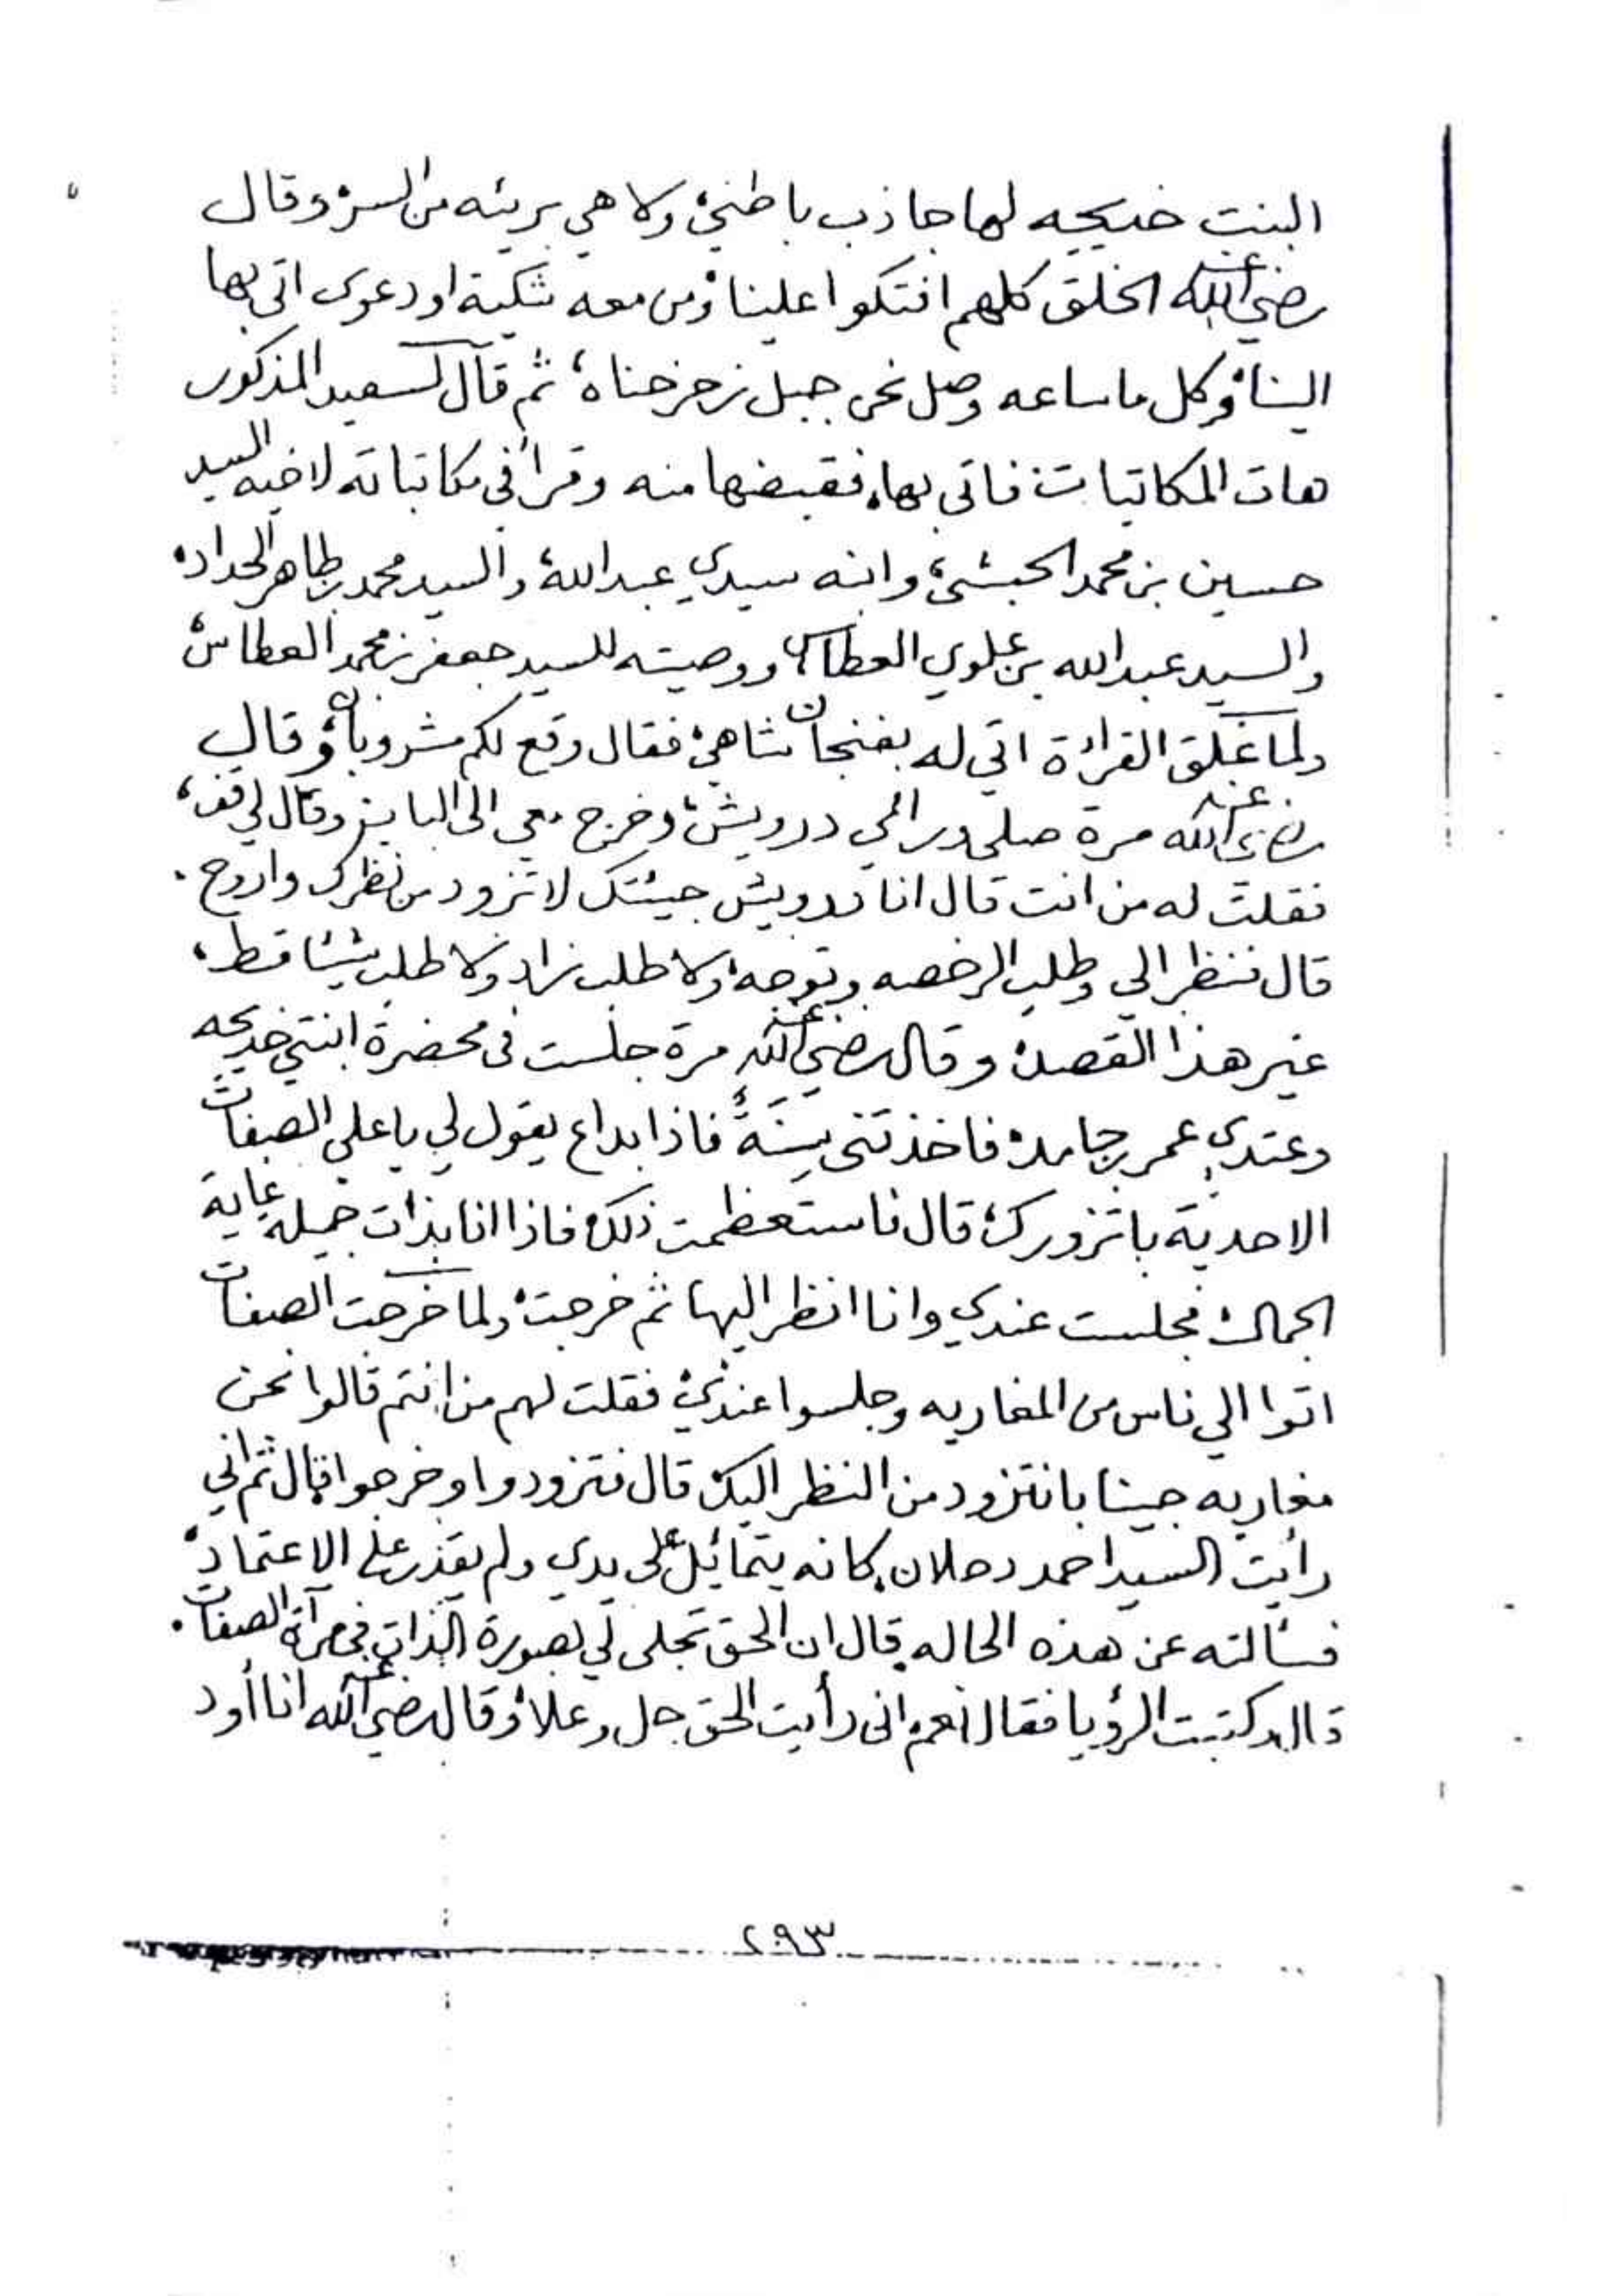 البنت خديجه لها جاذب باطني، ولا هي بريئه من السر، وقال
رضي الله عنه الخلق كلهم افتكوا علينا، ومن معه شكية او دعوى اتى بها
الينا، وكل ما ساعه وصل نحن جبل زحزحناه، ثم قال لسعيد المذكور
هات المكاتبات فاتى بها، فقبضها منه وقرأ في مكاتباته لاخيه السيد
حسين بن محمد الحبشي، وابنه سيدي عبدالله، والسيد محمد بن طاهر الحداد،
والسيد عبدالله بن علوي العطاس، ووصيته للسيد جعفر بن محمد العطاس،
ولما غلق القراءة اتي له بفنجان شاهي، فقال وقع لكم مشروبان، وقال
رضي الله عنه مرة صلى ورائي درويش، وخرج معي الى الباب وقال لي قف،
فقلت له من انت قال انا درويش جيئتك لاتزود من نظرك واروح.
قال فنظر الي وطلب الرخصه وتوجه، ولا طلب زاد ولا طلب شيئا قط،
غير هذا القصد، وقال رضي الله عنه مرة جلست في محضرة ابنتي خديجه
وعندي عمر بن حامد، فاخذتني سِنَةٌ فاذا بداع يقول لي يا علي الصفات
الاحدية باتزورك، قال فاستعظمت ذلك، فاذا انا بذات جميله غاية
الجمال، فجلست عندي وانا انظر اليها ثم خرجت، ولما خرجت الصفات
اتوا الي ناس من المغاربه وجلسوا عندي، فقلت لهم من انتم قالوا نحن
مغاربه جينا بانتزود من النظر اليك، قال فتزودوا وخرجوا، قال ثم اني
رأيت السيد احمد دحلان، كانه يتمائل على يدي ولم يقدر على الاعتماد،
فسألته عن هذه الحاله، قال ان الحق تجلى لي بصورة الذات في مرآة الصفات.
قال وكتبت الرؤيا فقال نعم اني رأيت الحق جل وعلا، وقال رضي الله عنه انا أود
٢٩٣